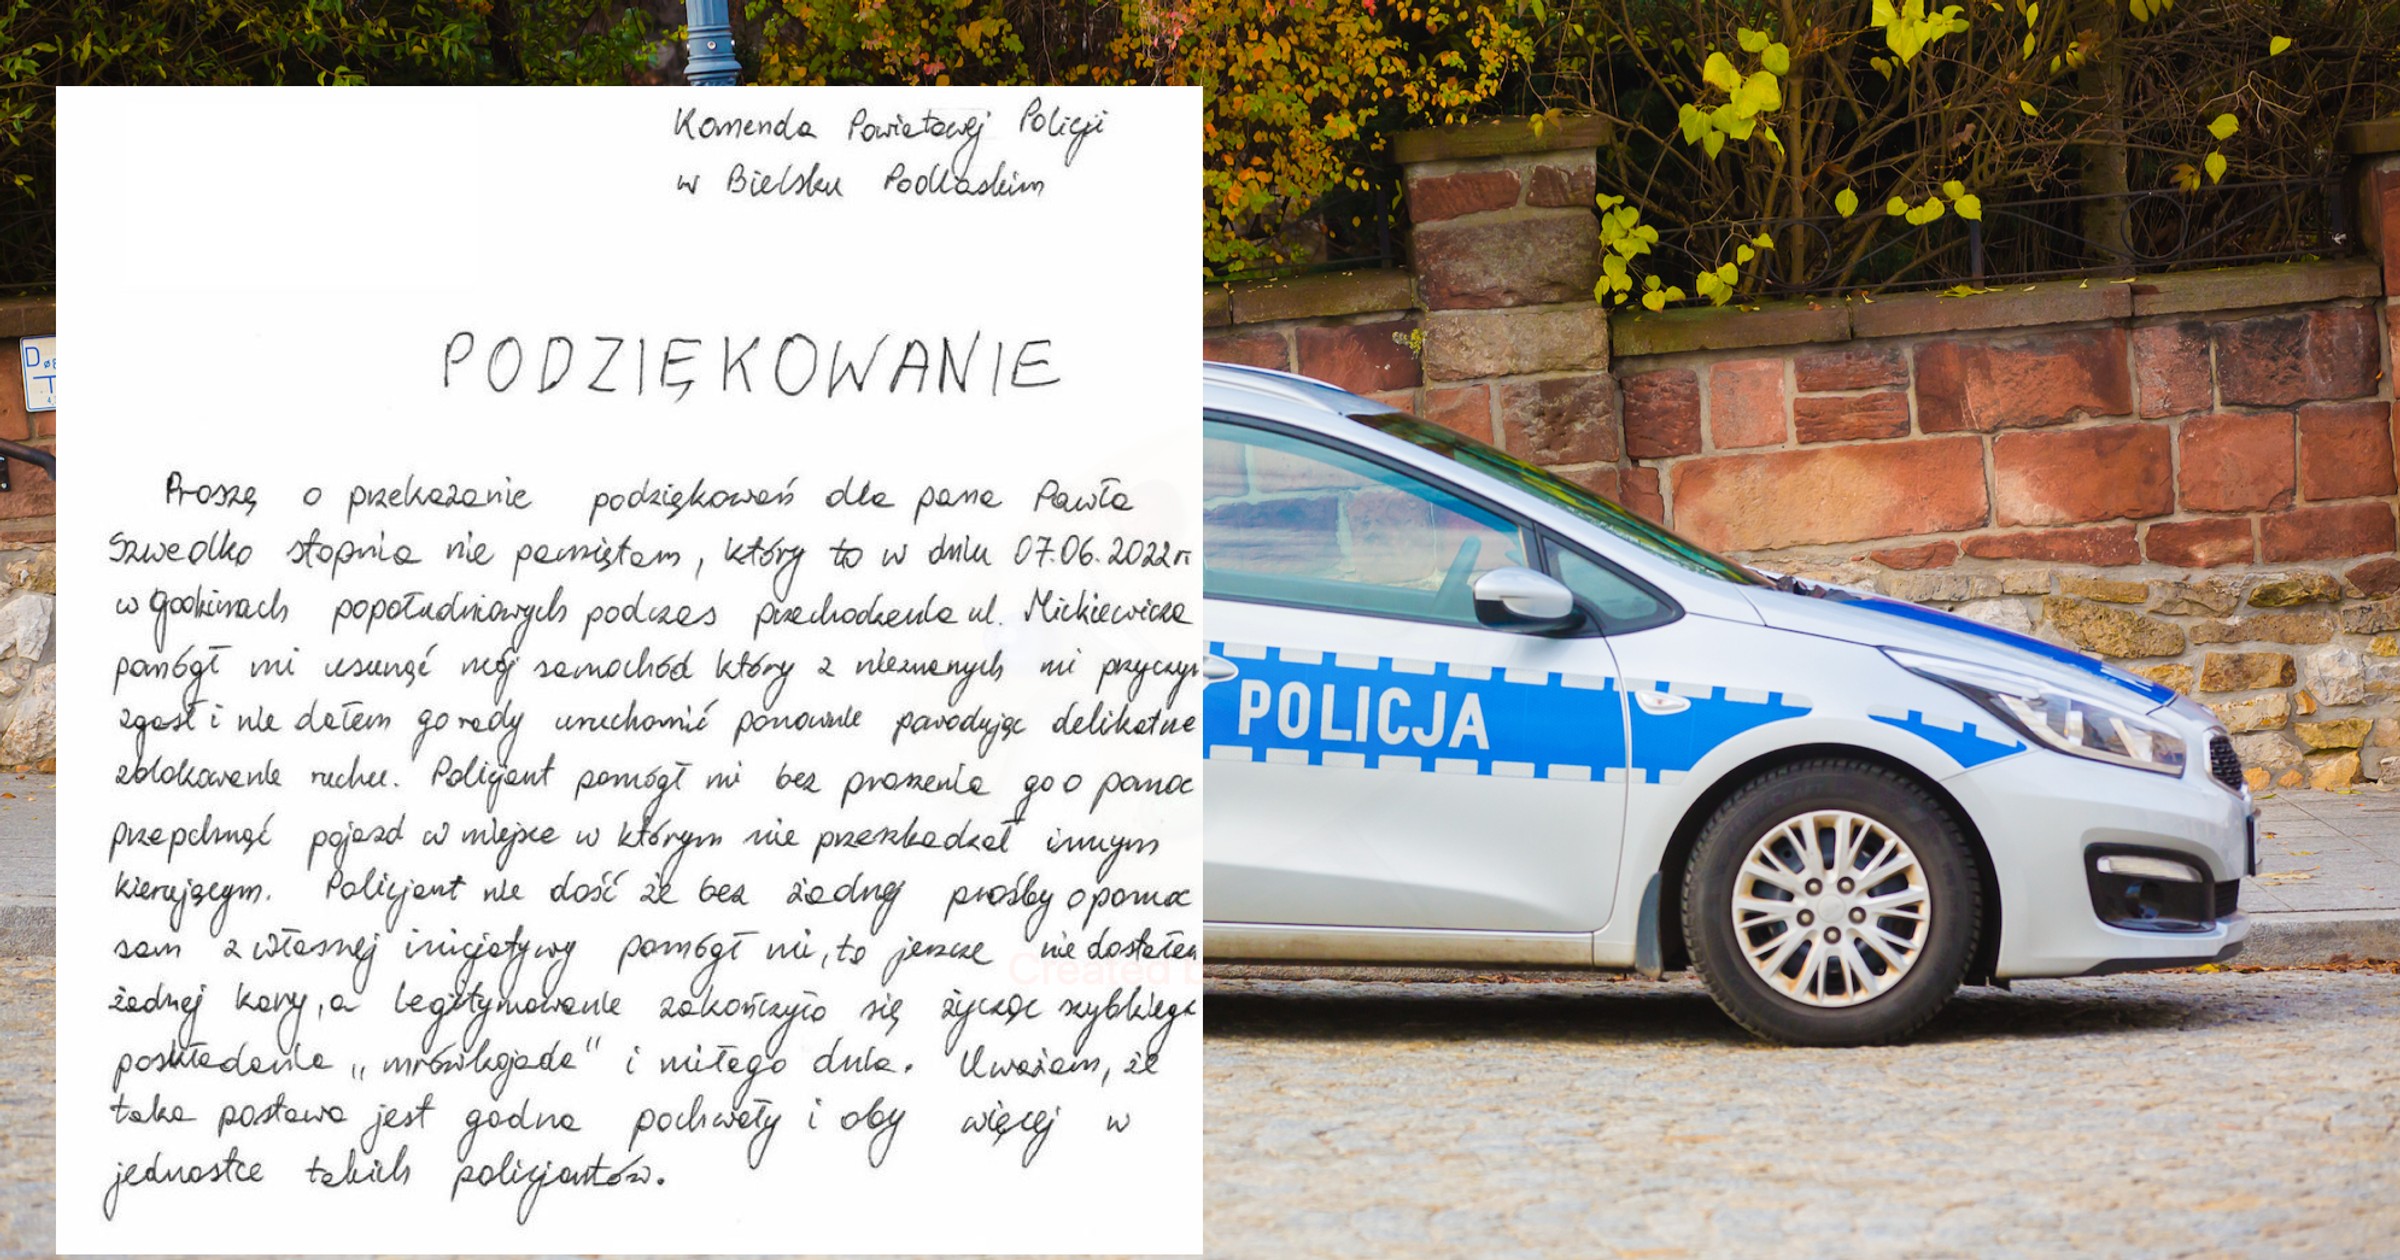 Komenda Powiatowej Policji
w Bielsku Podlaskim
PODZIĘKOWANIE
Proszę o przekazanie podziękowań dla pana Pawła
Szwedko stopnia nie pamiętam, który to w dniu 07.06.2022r
w godzinach popołudniowych podczas przechodzenia ul. Mickiewicza
pomógł mi usunąć mój samochód który z nieznanych mi przyczyn
zgasł i nie dałem go rady uruchomić ponownie powodując delikatne
zblokowanie ruchu. Policjant pomógł mi bez proszenia go o pomoc
przepchnąć pojazd w miejsce w którym nie przeszkadzał innym
kierującym. Policjant nie dość że bez żadnej prośby o pomoc
sam z własnej inicjatywy pomógł mi, to jeszcze nie dostałem
żadnej kary, a legitymowanie zakończyło się życząc szybkiego
poskładania „mrówkojada" i miłego dnia. Uważam, że
taka postawa jest godna pochwały i oby więcej w
jednostce takich policjantów.
Created b
POLICJA
D
T